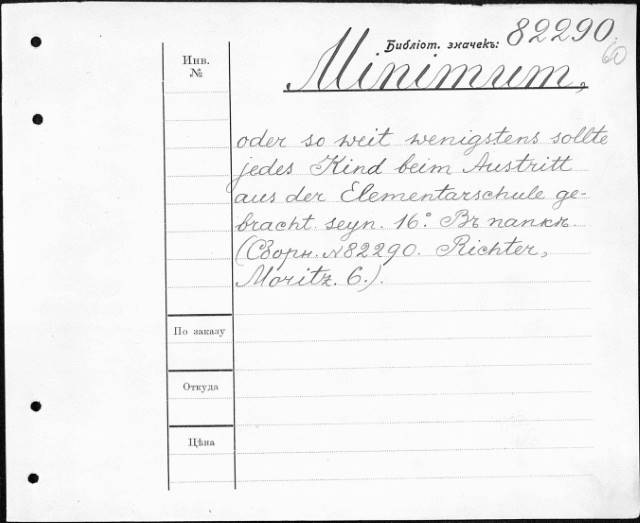 Библіот. значекъ: 82290.
60
Инв.
№
Minimum,
oder so weit wenigstens sollte
jedes Kind beim Austritt
aus der Elementarschule ge-
bracht seyn. 16° Въ папкѣ.
(Сборн. №82290. Richter,
Moritz. 6.).
По заказу
Откуда
Цѣна